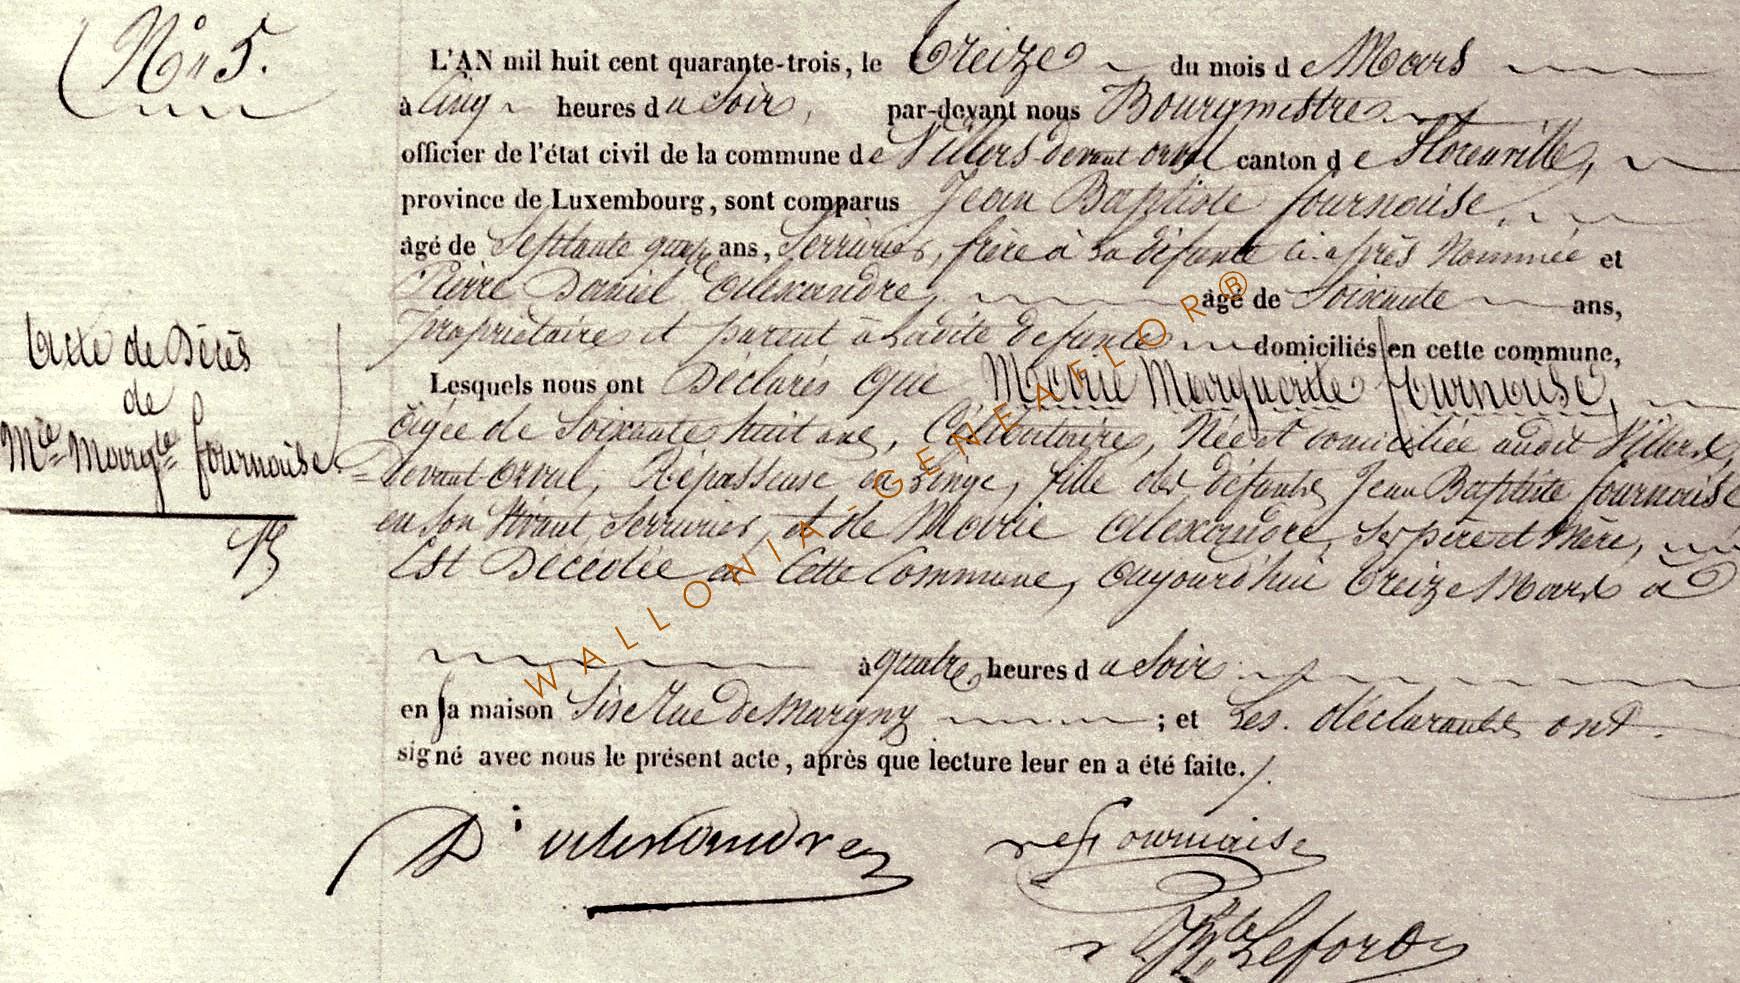 N° 5.
L'AN mil huit cent quarante-trois, le Treize du mois de Mars
à Cinq heures du Soir, par-devant nous Bourgmestre
officier de l'état civil de la commune de Villers devant orval canton de Florenville,
province de Luxembourg, sont comparus Jean Baptiste fournaise,
âgé de Septante quatre ans, Serrurier, frère à la défunte ci-après Nommée et
Pierre Daniel Alexandre, âgé de Soixante ans,
propriétaire et parent à Ladite defunte domiciliés en cette commune,
Lesquels nous ont Déclarés que Marie Marguerite fournaise,
Agée de Soixante huit ans, Célibataire, Née et domiciliée audit Villers
devant orval, Répasseuse en Linge, fille des défunts Jean Baptiste fournaise
en son Vivant Serrurier, et de Marie Alexandre, Ses père et Mère,
Est Décédée en Cette Commune, Aujourd'hui Treize Mars à
à quatre heures du Soir
en sa maison Sise Rue de Margny ; et Les déclarants ont
signé avec nous le présent acte, après que lecture leur en a été faite.
Acte de Décès
de
Mie Margte fournaise
D. alexandre
fournaise
Lefort
WALLONIA-GENEAFLOR®